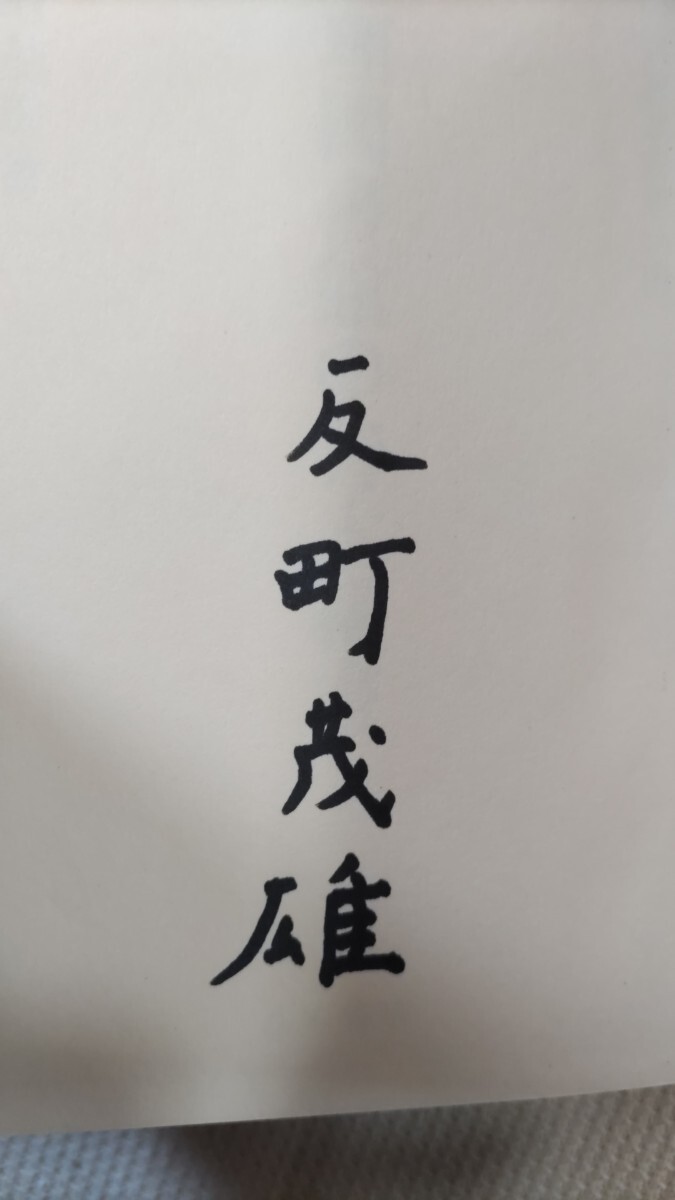 反町茂雄